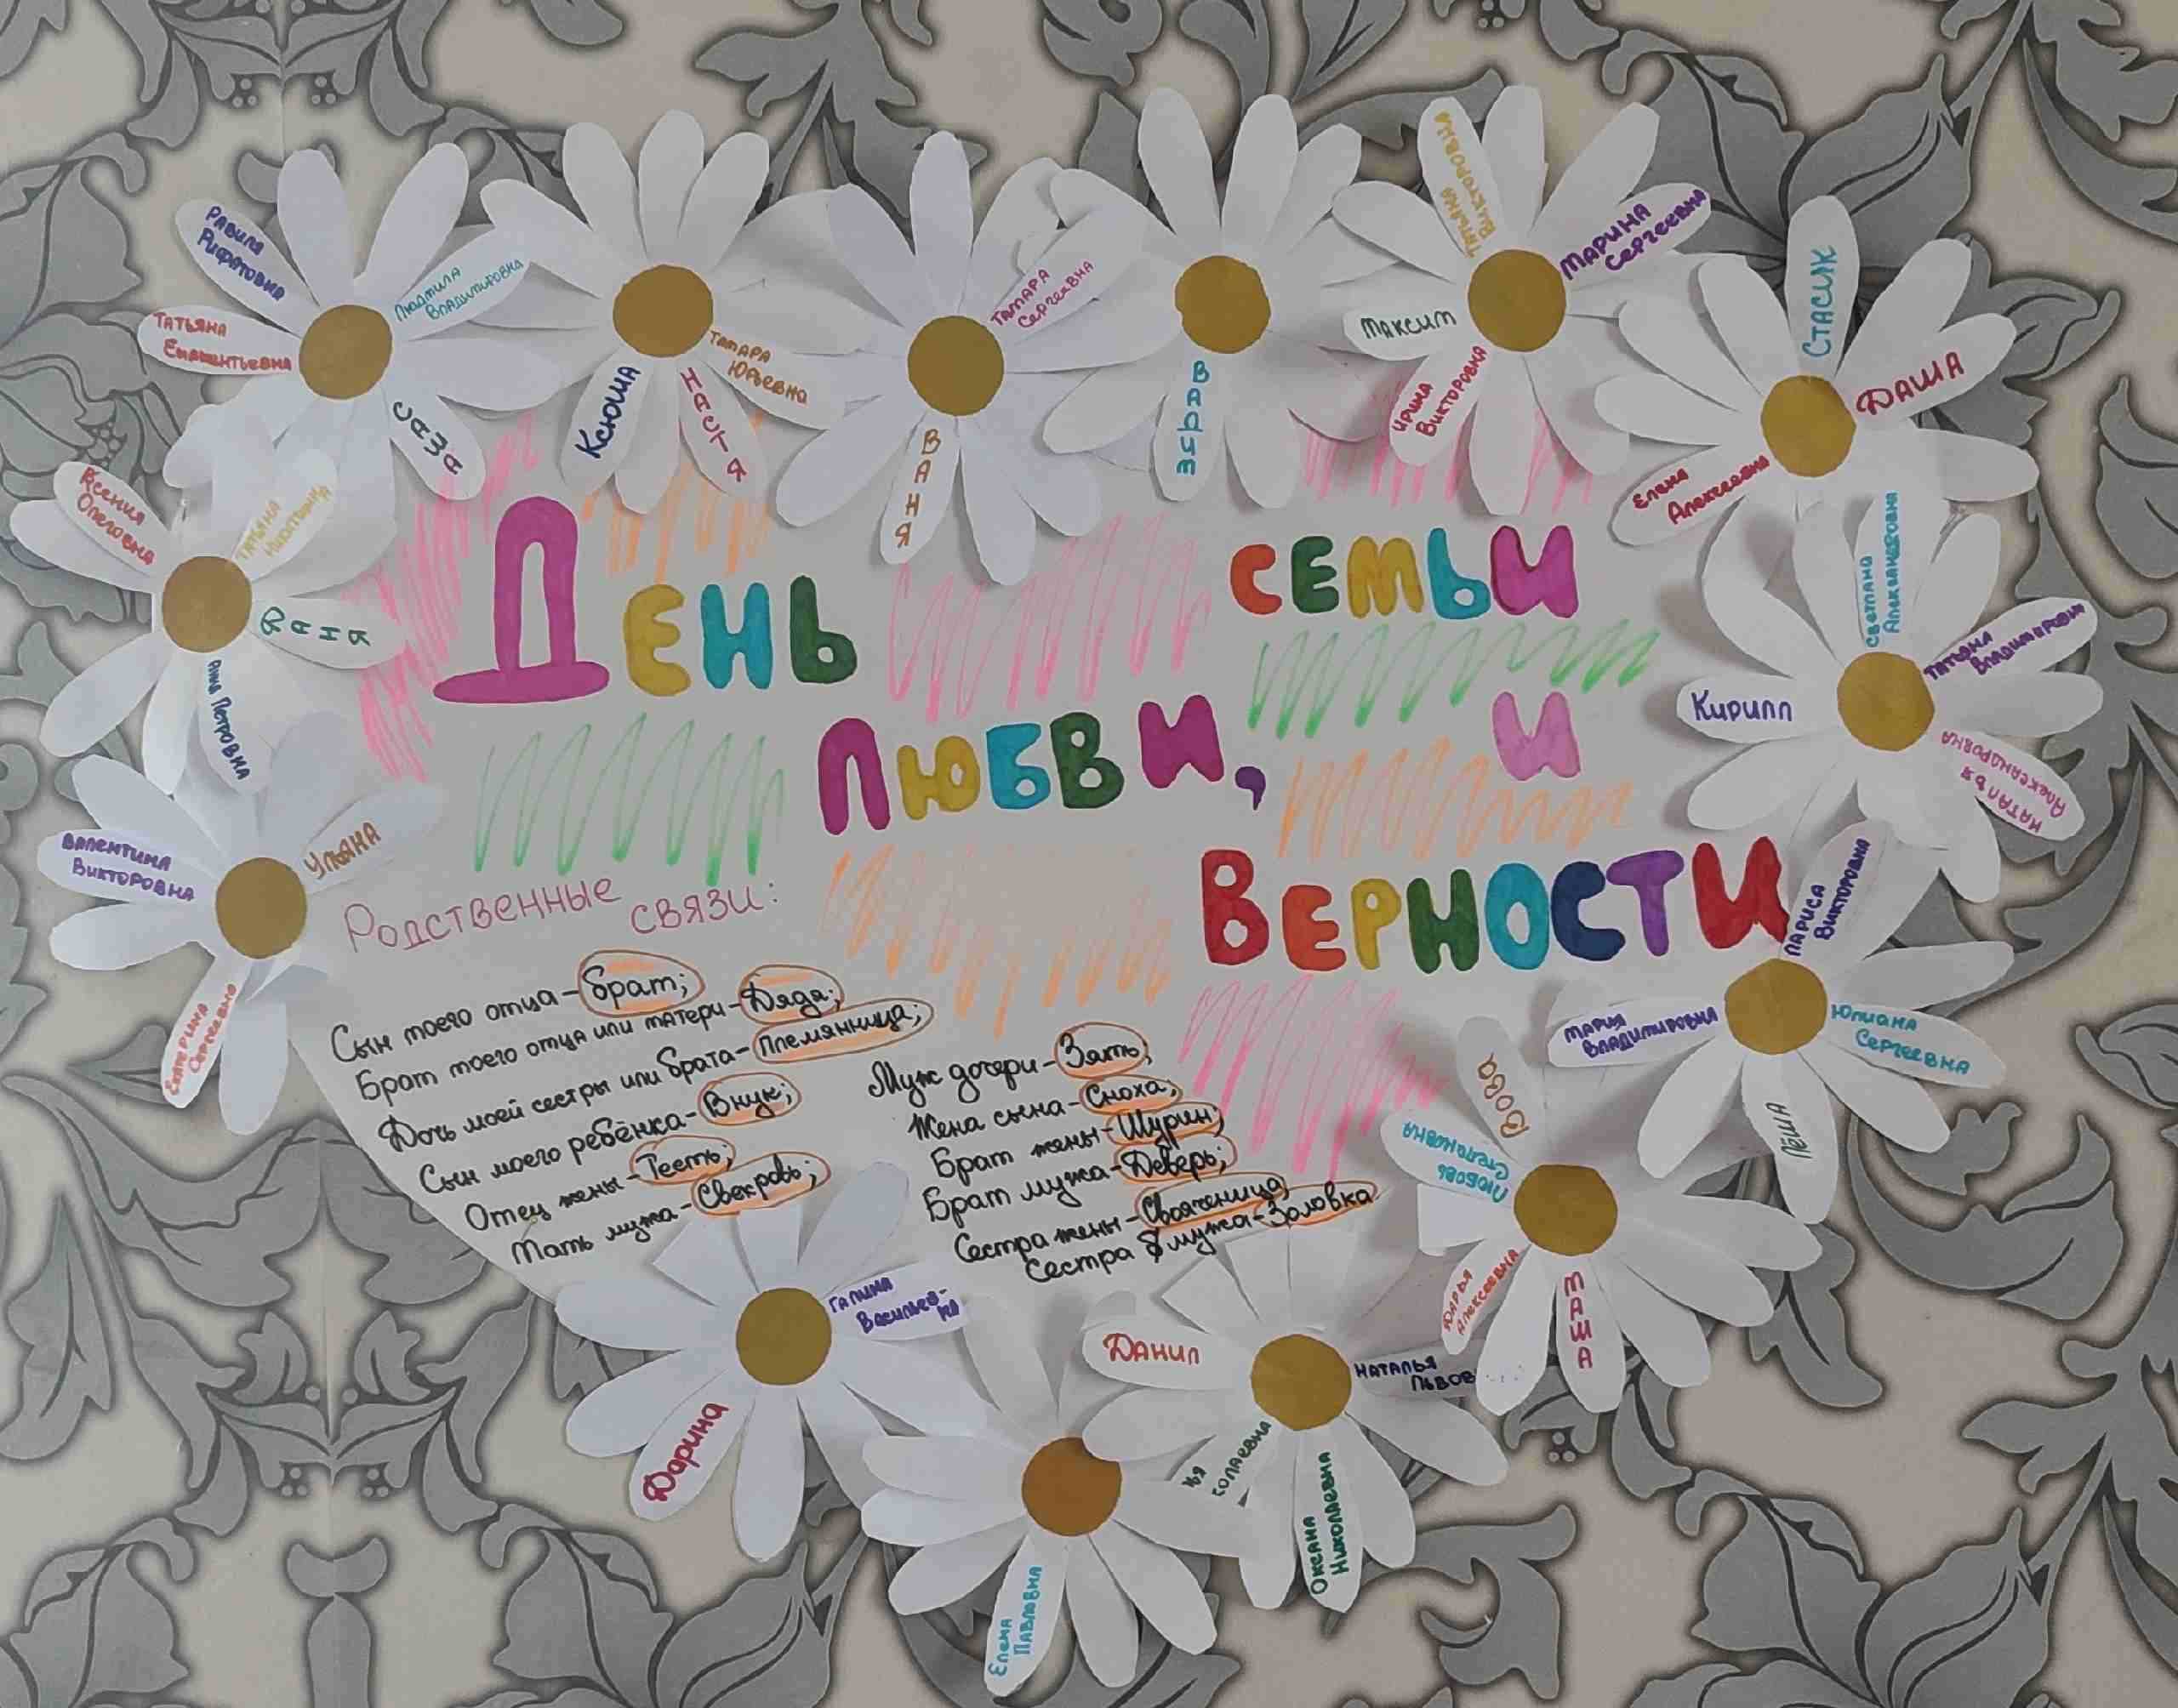 День семьи
любви, и
верности
Родственные связи:
Сын моего отца - брат;
Брат моего отца или матери - Дядя;
Дочь моей сестры или брата - племянница;
Сын моего ребёнка - Внук;
Отец жены - Тесть;
Мать мужа - Свекровь;
Муж дочери - Зять;
Жена сына - Сноха;
Брат жены - Шурин;
Брат мужа - Деверь;
Сестра жены - Свояченица
Сестра мужа - Золовка
Равиля
Рифатовна
Людмила
Владимировна
Татьяна
Саша
Ксюша
Настя
Тамара
Юрьевна
Тамара
Сергеевна
Ваня
Татьяна
Викторовна
Марина
Сергеевна
Максим
Ирина
Викторовна
Стасик
Даша
Елена
Алексеевна
Светлана
Татьяна
Владимировна
Кирилл
Наталья
Александровна
Лариса
Викторовна
Мария
Владимировна
Юлиана
Сергеевна
Лёша
Вова
Любовь
Степановна
Дарья
Алексеевна
Маша
Данил
Наталья
Николаевна
Елена
Павловна
Галина
Васильев-
на
Дарина
Екатерина
Сергеевна
Валентина
Викторовна
Ульяна
Ксения
Олеговна
Татьяна
Ваня
Анна Петровна